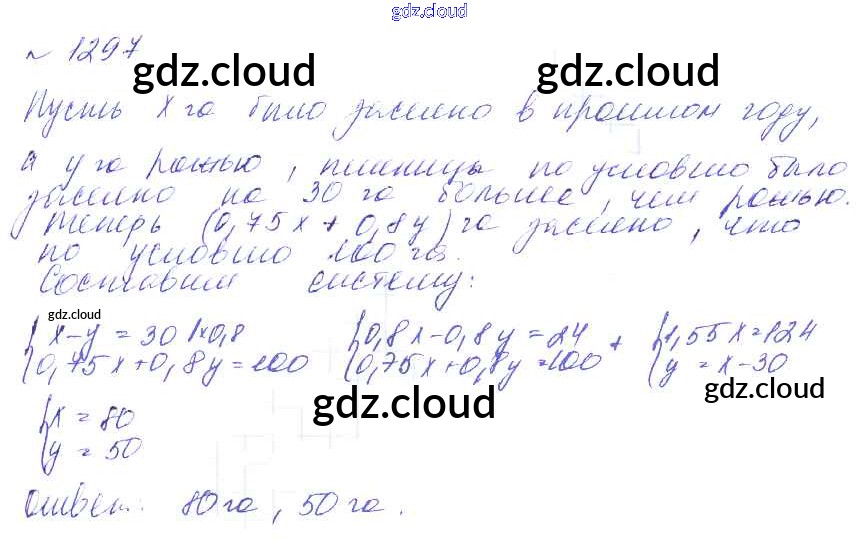 gdz.cloud
№ 1297
gdz.cloud gdz.cloud
Пусть x га было засеяно в прошлом году,
а y га рожью, пшеницы по условию было
засеяно на 30 га больше, чем рожью.
Теперь (0,75x + 0,8y) га засеяно, что
по условию 100 га.
Составим систему:
gdz.cloud
{ x - y = 30 |×0,8 { 0,8x - 0,8y = 24 + { 1,55x = 124
{ 0,75x + 0,8y = 100 { 0,75x + 0,8y = 100 { y = x - 30
gdz.cloud gdz.cloud
{ x = 80
{ y = 50
Ответ: 80 га, 50 га.